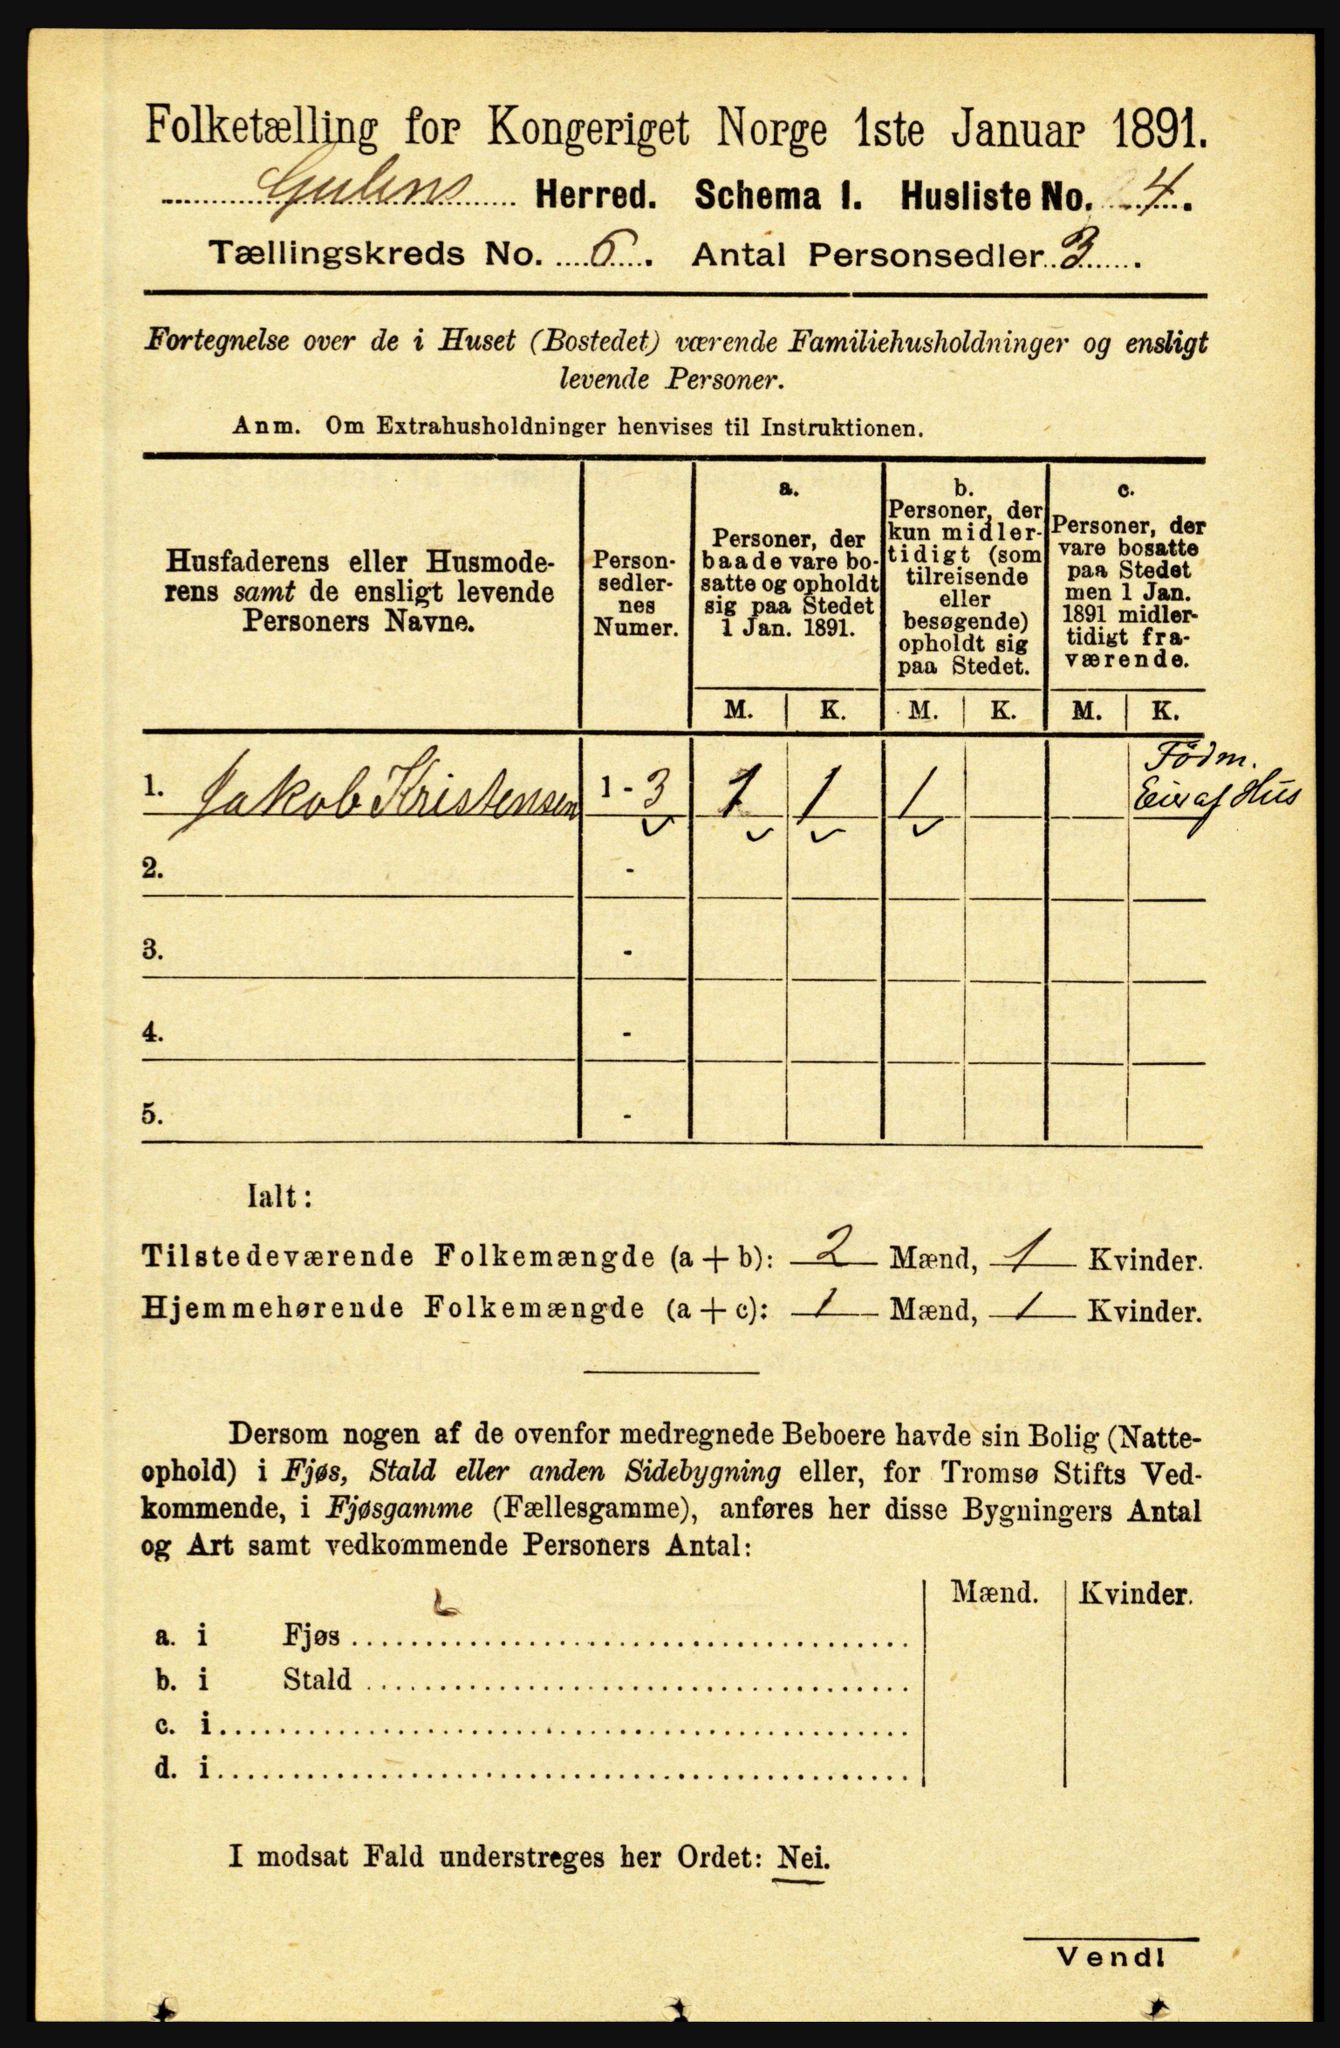 Folketælling for Kongeriget Norge 1ste Januar 1891.
Gulens Herred. Schema I. Husliste No. 4.
Tællingskreds No. 6. Antal Personsedler 3.
Fortegnelse over de i Huset (Bostedet) værende Familiehusholdninger og ensligt
levende Personer.
Anm. Om Extrahusholdninger henvises til Instruktionen.
Husfaderens eller Husmode-
rens samt de ensligt levende
Personers Navne.
Person-
sedler-
nes
Numer.
a.
Personer, der
baade vare bo-
satte og opholdt
sig paa Stedet
1 Jan. 1891.
b.
Personer, der
kun midler-
tidigt (som
tilreisende
eller
besøgende)
opholdt sig
paa Stedet.
c.
Personer, der
vare bosatte
paa Stedet
men 1 Jan.
1891 midler-
tidigt fra-
værende.
M. K. M. K. M. K.
Fødm.
1. Jakob Kristensen 1 - 3 1 1 1 Eier af Hus
2. -
3. -
4. -
5. -
Ialt:
Tilstedeværende Folkemængde (a + b): 2 Mænd, 1 Kvinder.
Hjemmehørende Folkemængde (a + c): 1 Mænd, 1 Kvinder.
Dersom nogen af de ovenfor medregnede Beboere havde sin Bolig (Natte-
ophold) i Fjøs, Stald eller anden Sidebygning eller, for Tromsø Stifts Ved-
kommende, i Fjøsgamme (Fællesgamme), anføres her disse Bygningers Antal
og Art samt vedkommende Personers Antal:
Mænd. Kvinder.
a. i Fjøs
b. i Stald
c. i
d. i
I modsat Fald understreges her Ordet: Nei.
Vend!